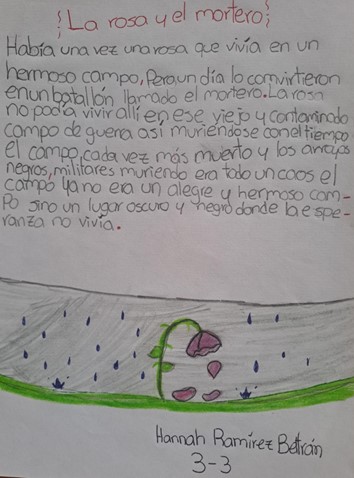 ¡La rosa y el mortero!
Había una vez una rosa que vivía en un
hermoso campo, Pero un día lo comvirtieron
en un batallón llamado el mortero. La rosa
no podía vivir allí en ese viejo y contaminado
campo de guerra así muriendose con el tiempo
el campo, cada vez más muerto y los arroyos
negros, militares muriendo era todo un caos el
campo ya no era un alegre y hermoso cam-
Po sino un lugar oscuro y negro donde la espe-
ranza no vivía.
Hannah Ramírez Beltrán
3-3